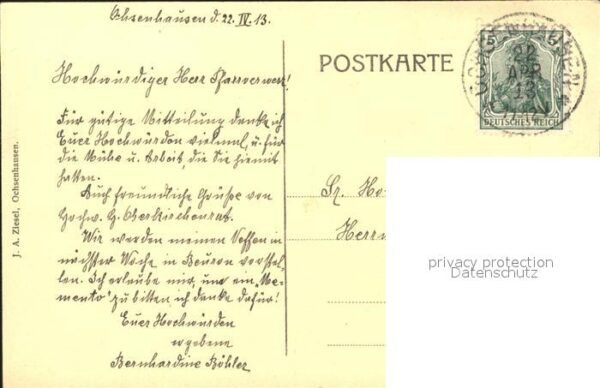 Ochsenhausen d. 22. IV. 13.
Hochwürdiger Herr Pfarrverweser!
Für gütige Mitteilung danke ich
Euer Hochwürden vielmal, u. für
die Mühe u. Arbeit, die Sie hiemit
hatten.
Auch freundliche Grüße von
Hochw. H. Oberkirchenrat.
Wir werden meinen Neffen in
nächster Woche in Beuron vorstel-
len. Ich erlaube mir, um ein „Me-
mento" zu bitten ich danke dafür!
Euer Hochwürden
ergebene
Bernhardine Böhler
J. A. Ziesel, Ochsenhausen.
POSTKARTE
5 5
DEUTSCHES REICH
OCHSENHAUSEN
22
APR
13
Sr. Ho
Herrn
privacy protection
Datenschutz